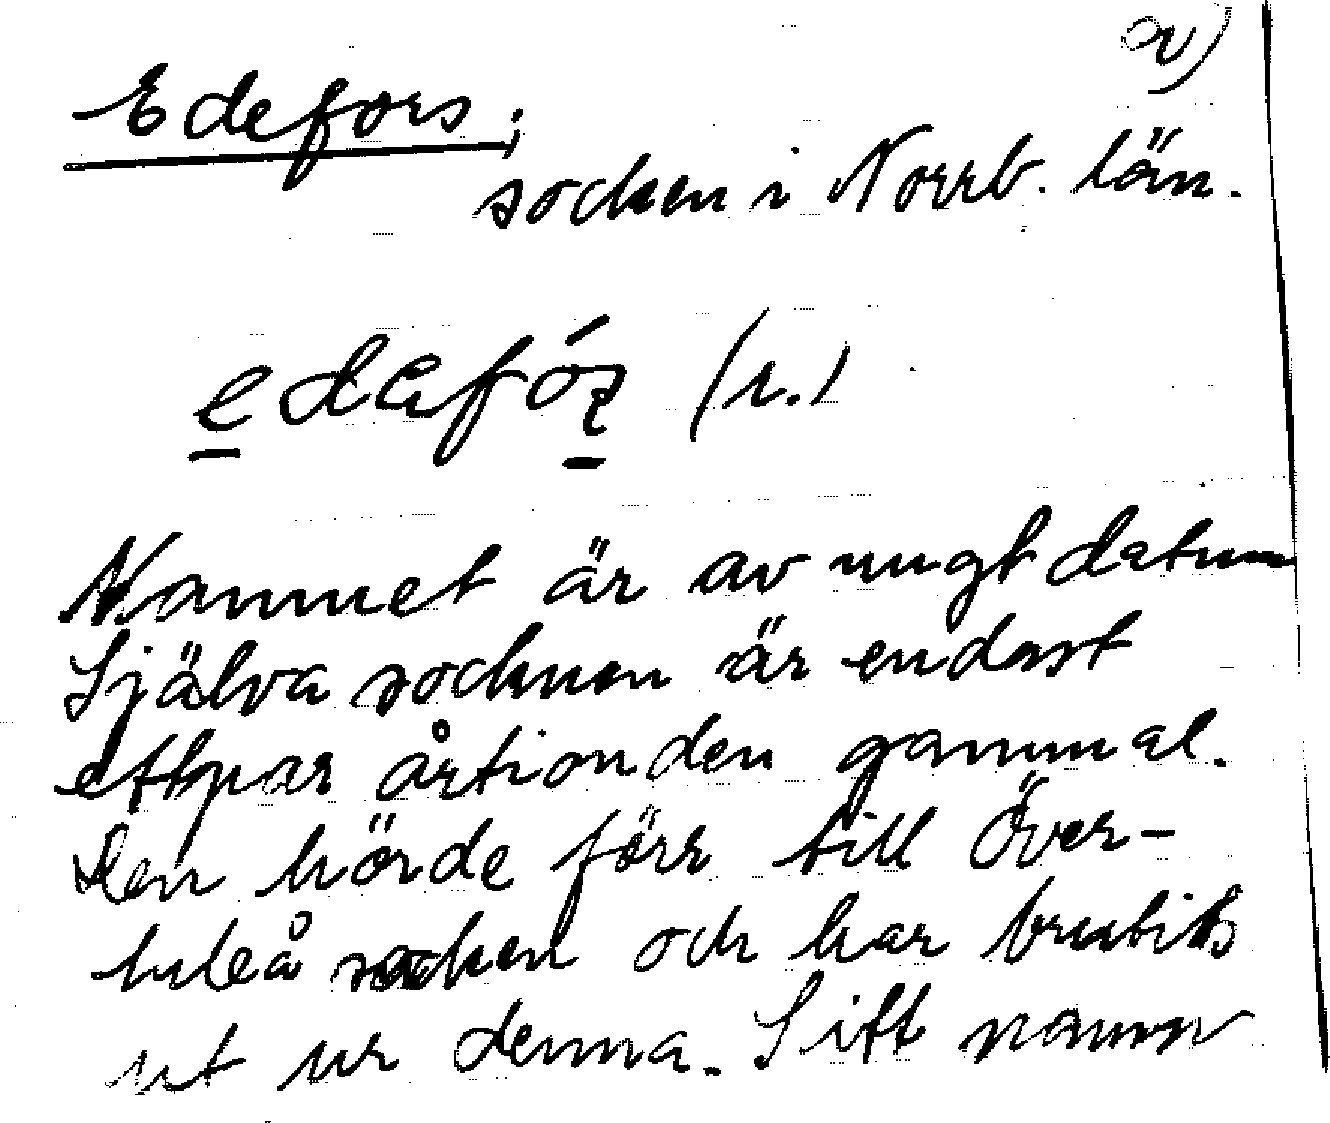 a)
Edefors;
socken i Norrb. län.
(r.)
Namnet är av ungt datum
Själva socknen är endast
ett par årtionden gammal.
Den hörde förr till Över-
luleå socken och har brutits
ut ur denna. Sitt namn